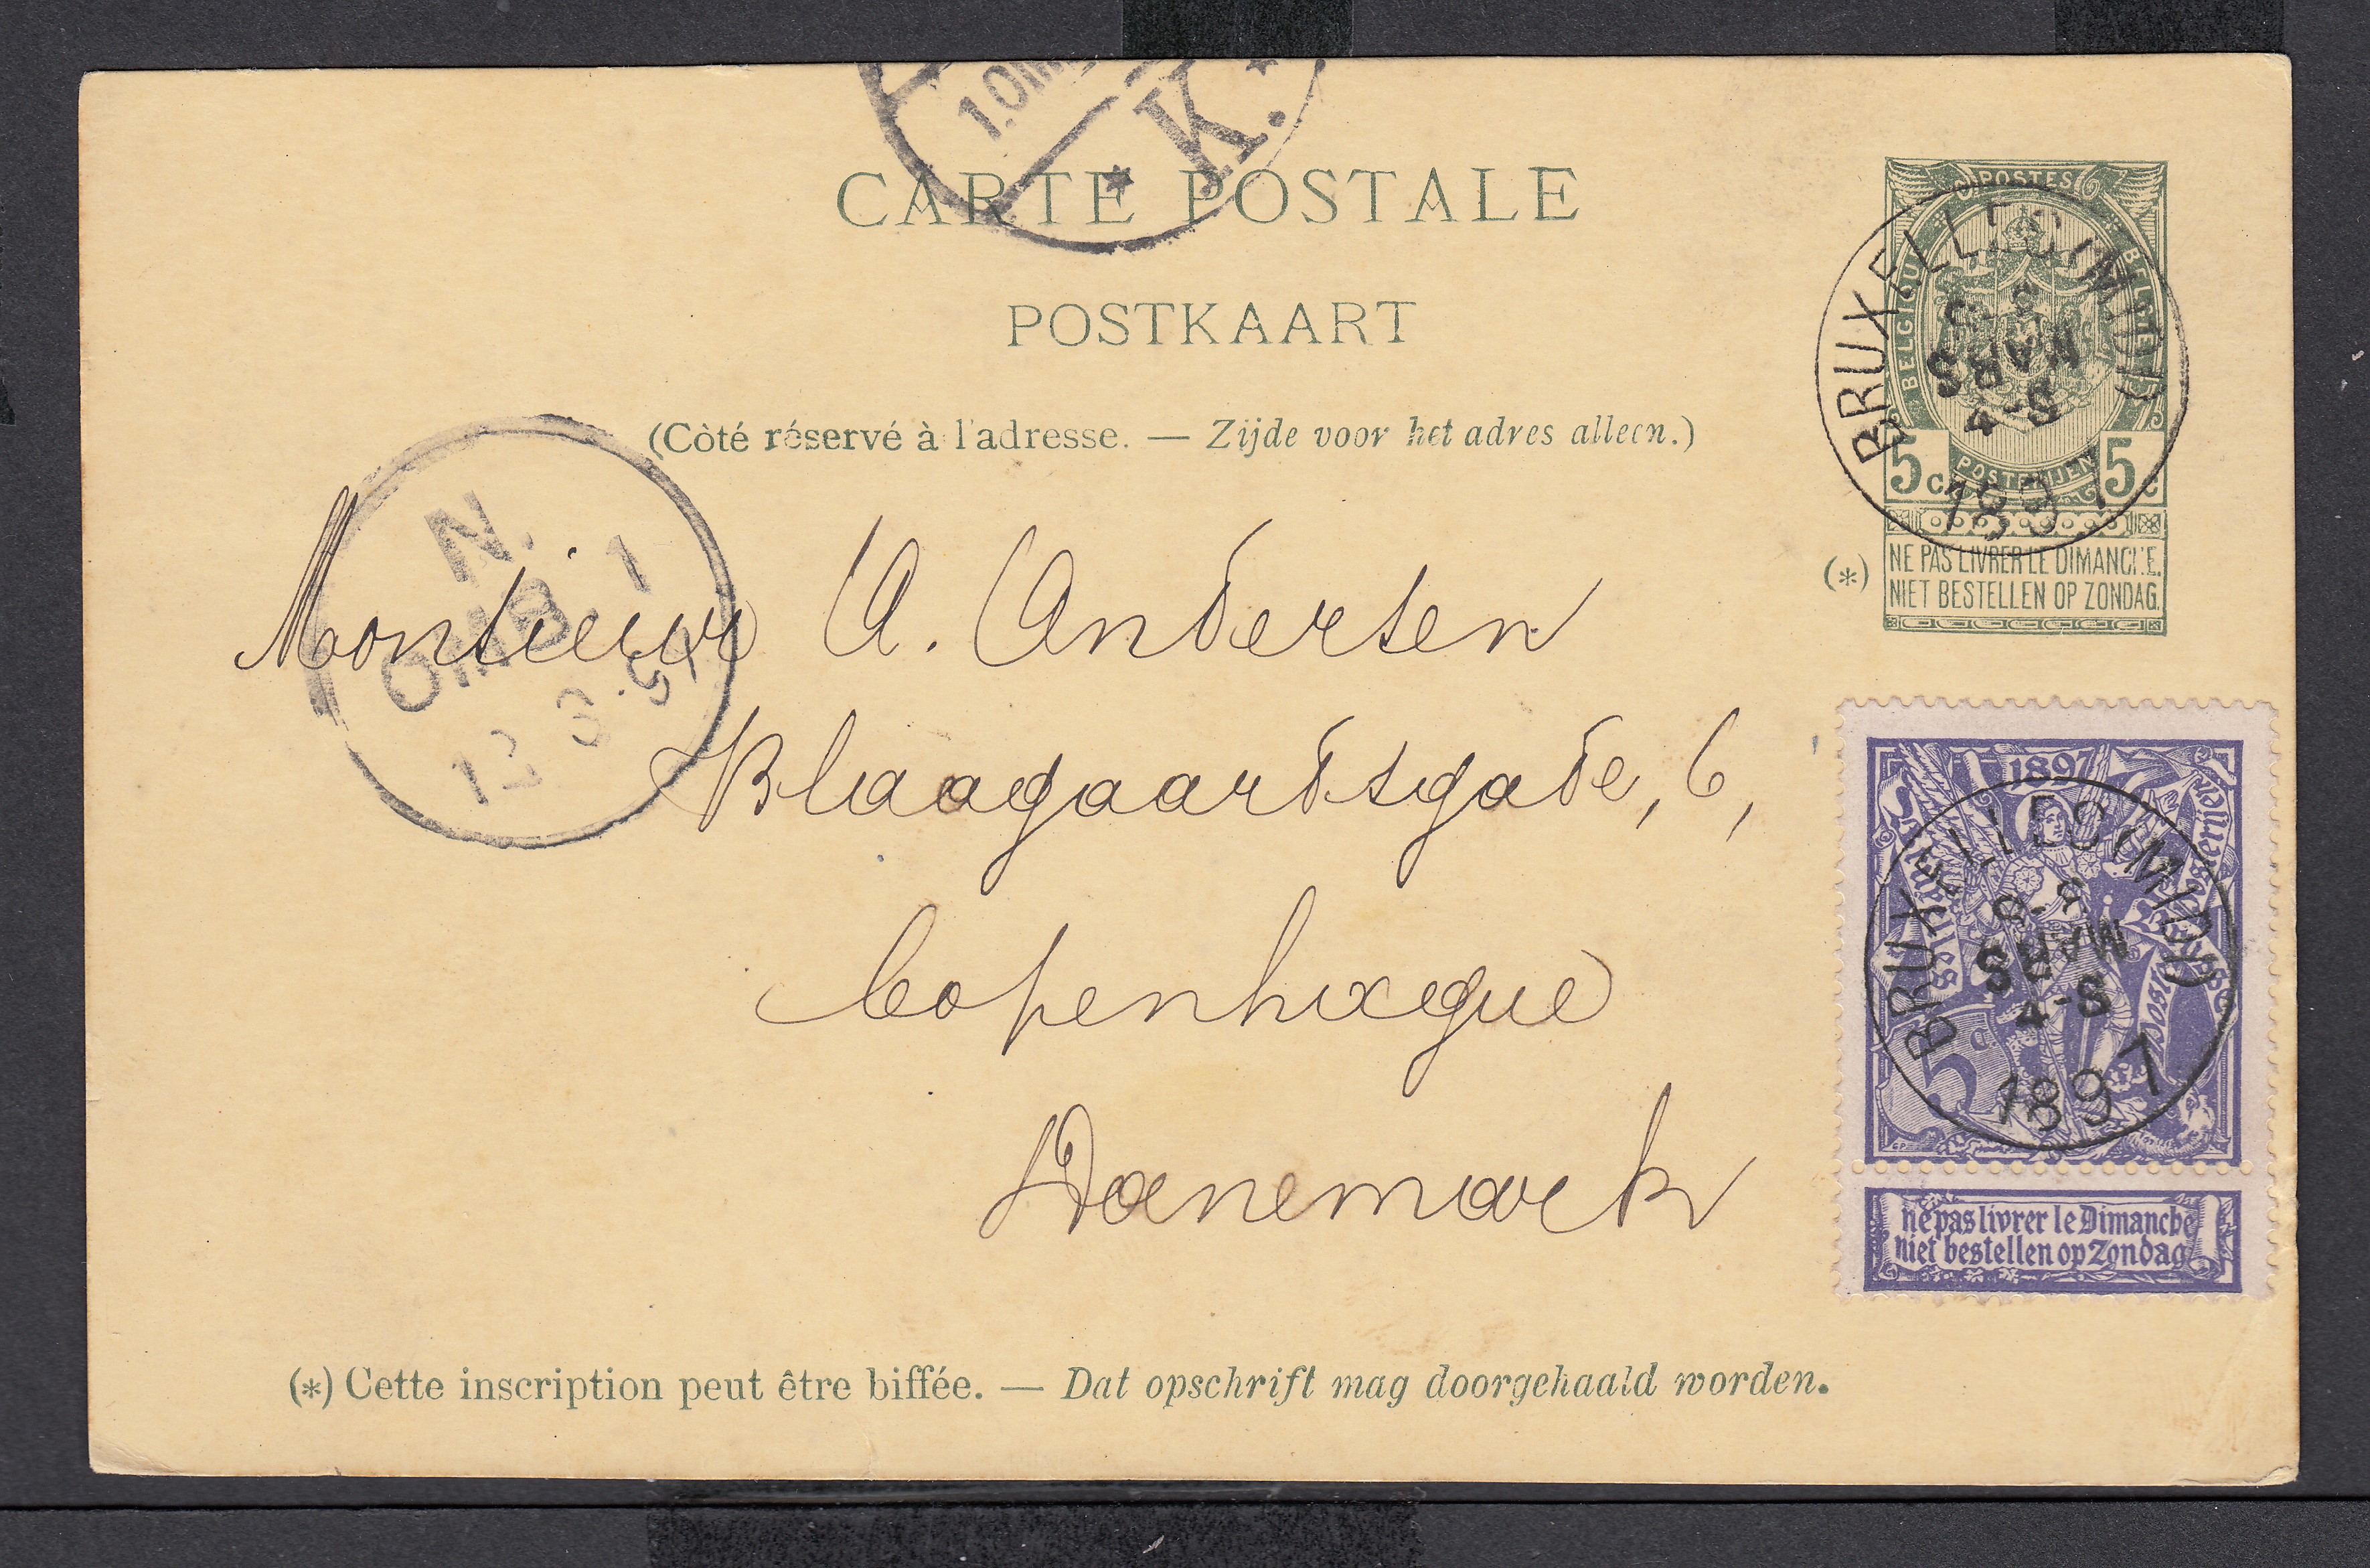 1.OMB.
K.
CARTE POSTALE
POSTKAART
(Côté réservé à l'adresse. — Zijde voor het adres alleen.)
POSTES
BELGIQUE
BELGIË
POSTERIJEN
5 c 5 c
(*) NE PAS LIVRER LE DIMANCHE.
NIET BESTELLEN OP ZONDAG.
BRUXELLES (MIDI)
MARS
4-S
1897
N.
OMB. 1
12 3 97
Monsieur A. Andersen
Blaagaardsgade, 6,
Copenhague
Danemark
1897
5 c
BRUXELLES (MIDI)
MARS
4-S
1897
ne pas livrer le Dimanche
niet bestellen op Zondag
(*) Cette inscription peut être biffée. — Dat opschrift mag doorgehaald worden.